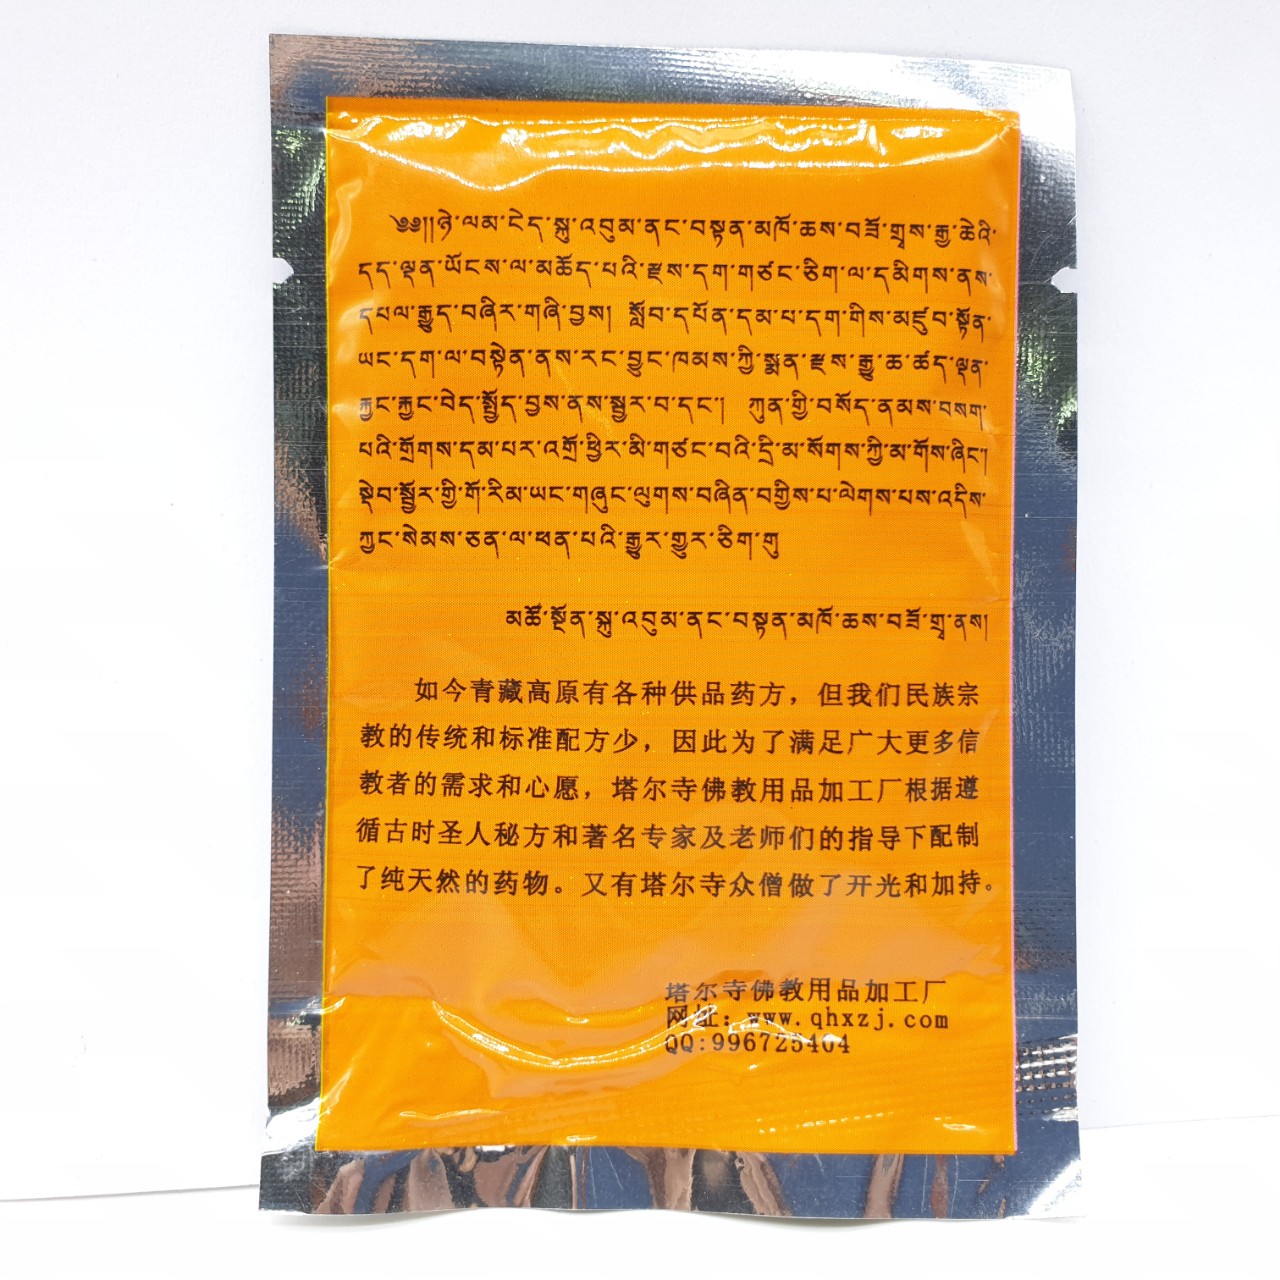 ༄༅།།ཉེ་ལམ་ངེད་སྐུ་འབུམ་ནང་བསྟན་མཁོ་ཆས་བཟོ་གྲྭས་རྒྱ་ཆེའི་
དད་ལྡན་ཡོངས་ལ་མཆོད་པའི་རྫས་དག་གཙང་ཅིག་ལ་དམིགས་ནས་
དཔལ་རྒྱུད་བཞིར་གཞི་བྱས། སློབ་དཔོན་དམ་པ་དག་གིས་མཛུབ་སྟོན་
ཡང་དག་ལ་བསྟེན་ནས་རང་བྱུང་ཁམས་ཀྱི་སྨན་རྫས་རྒྱུ་ཆ་ཚད་ལྡན་
རྐྱང་རྐྱང་བེད་སྤྱོད་བྱས་ནས་སྦྱར་བ་དང་། ཀུན་གྱི་བསོད་ནམས་བསག་
པའི་གྲོགས་དམ་པར་འགྲོ་ཕྱིར་མི་གཙང་བའི་དྲི་མ་སོགས་ཀྱི་མ་གོས་ཞིང་།
སྡེབ་སྦྱོར་གྱི་གོ་རིམ་ཡང་གཞུང་ལུགས་བཞིན་བགྱིས་པ་ལེགས་པས་འདིས་
ཀྱང་སེམས་ཅན་ལ་ཕན་པའི་རྒྱུར་གྱུར་ཅིག་གུ
མཚོ་སྔོན་སྐུ་འབུམ་ནང་བསྟན་མཁོ་ཆས་བཟོ་གྲྭ་ནས།
如今青藏高原有各种供品药方，但我们民族宗
教的传统和标准配方少，因此为了满足广大更多信
教者的需求和心愿，塔尔寺佛教用品加工厂根据遵
循古时圣人秘方和著名专家及老师们的指导下配制
了纯天然的药物。又有塔尔寺众僧做了开光和加持。
塔尔寺佛教用品加工厂
网址：www.qhxzj.com
QQ:996725404